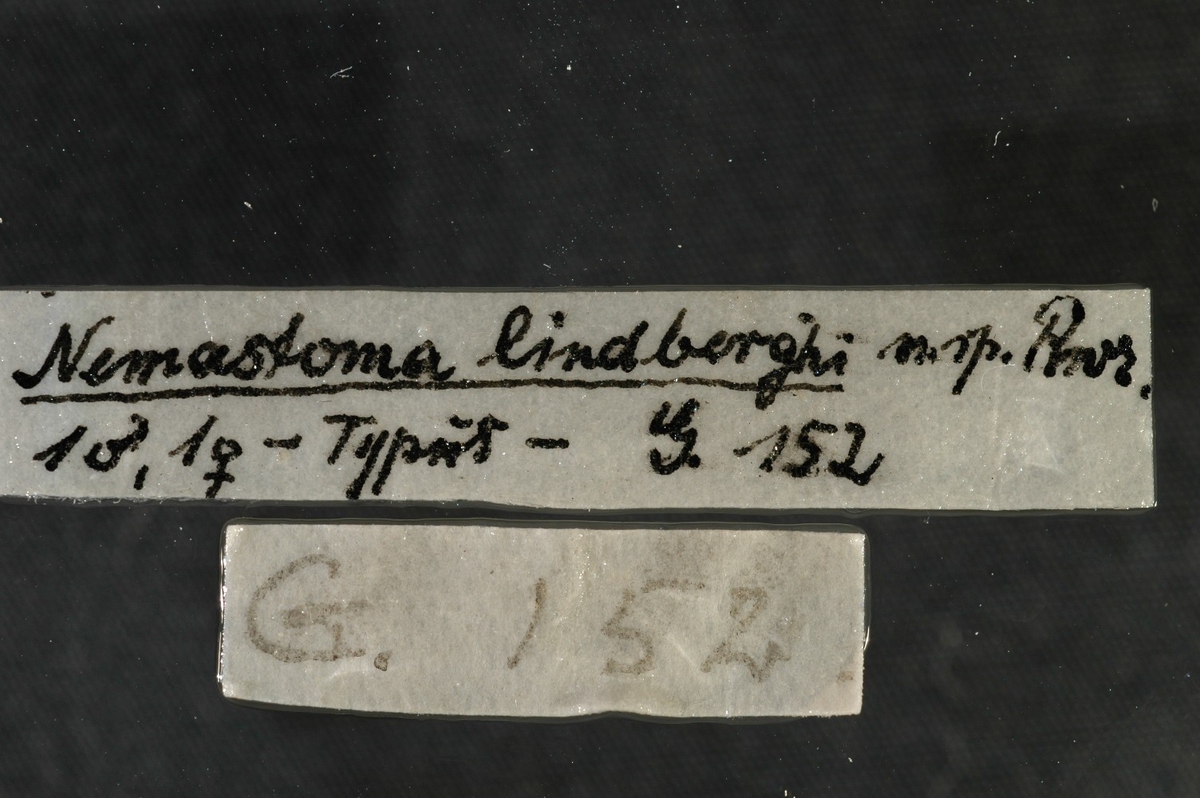 Nemastoma lindberghi n.sp. Rwr.
1♂, 1♀ - Typus - G. 152
G. 152.